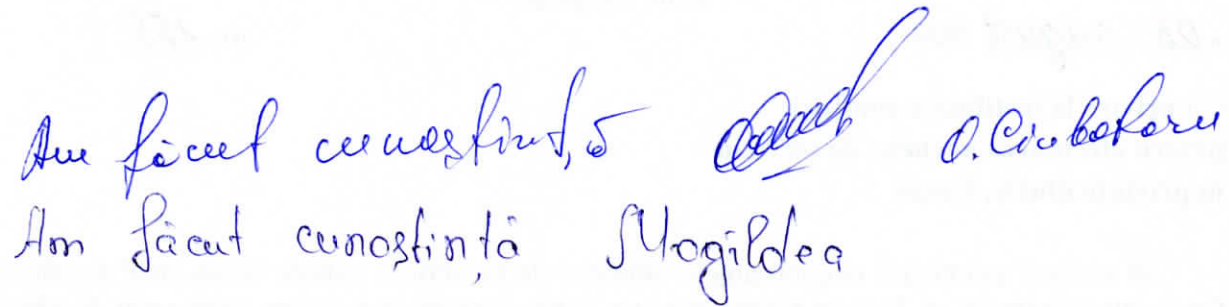 Am făcut cunoștință O. Ciubotaru
Am făcut cunoștință Mogîldea